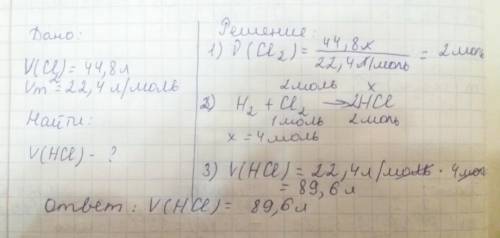 Дано:
V(Cl₂)=44,8л
Vm=22,4 л/моль
Найти:
V(HCl)-?
Решение:
1) ν(Cl₂)= 44,8л / 22,4 л/моль = 2 моль
2моль x
2) H₂ + Cl₂ → 2HCl
1моль 2моль
x = 4 моль
3) V(HCl) = 22,4 л/моль · 4моль
= 89,6 л
Ответ: V(HCl) = 89,6 л